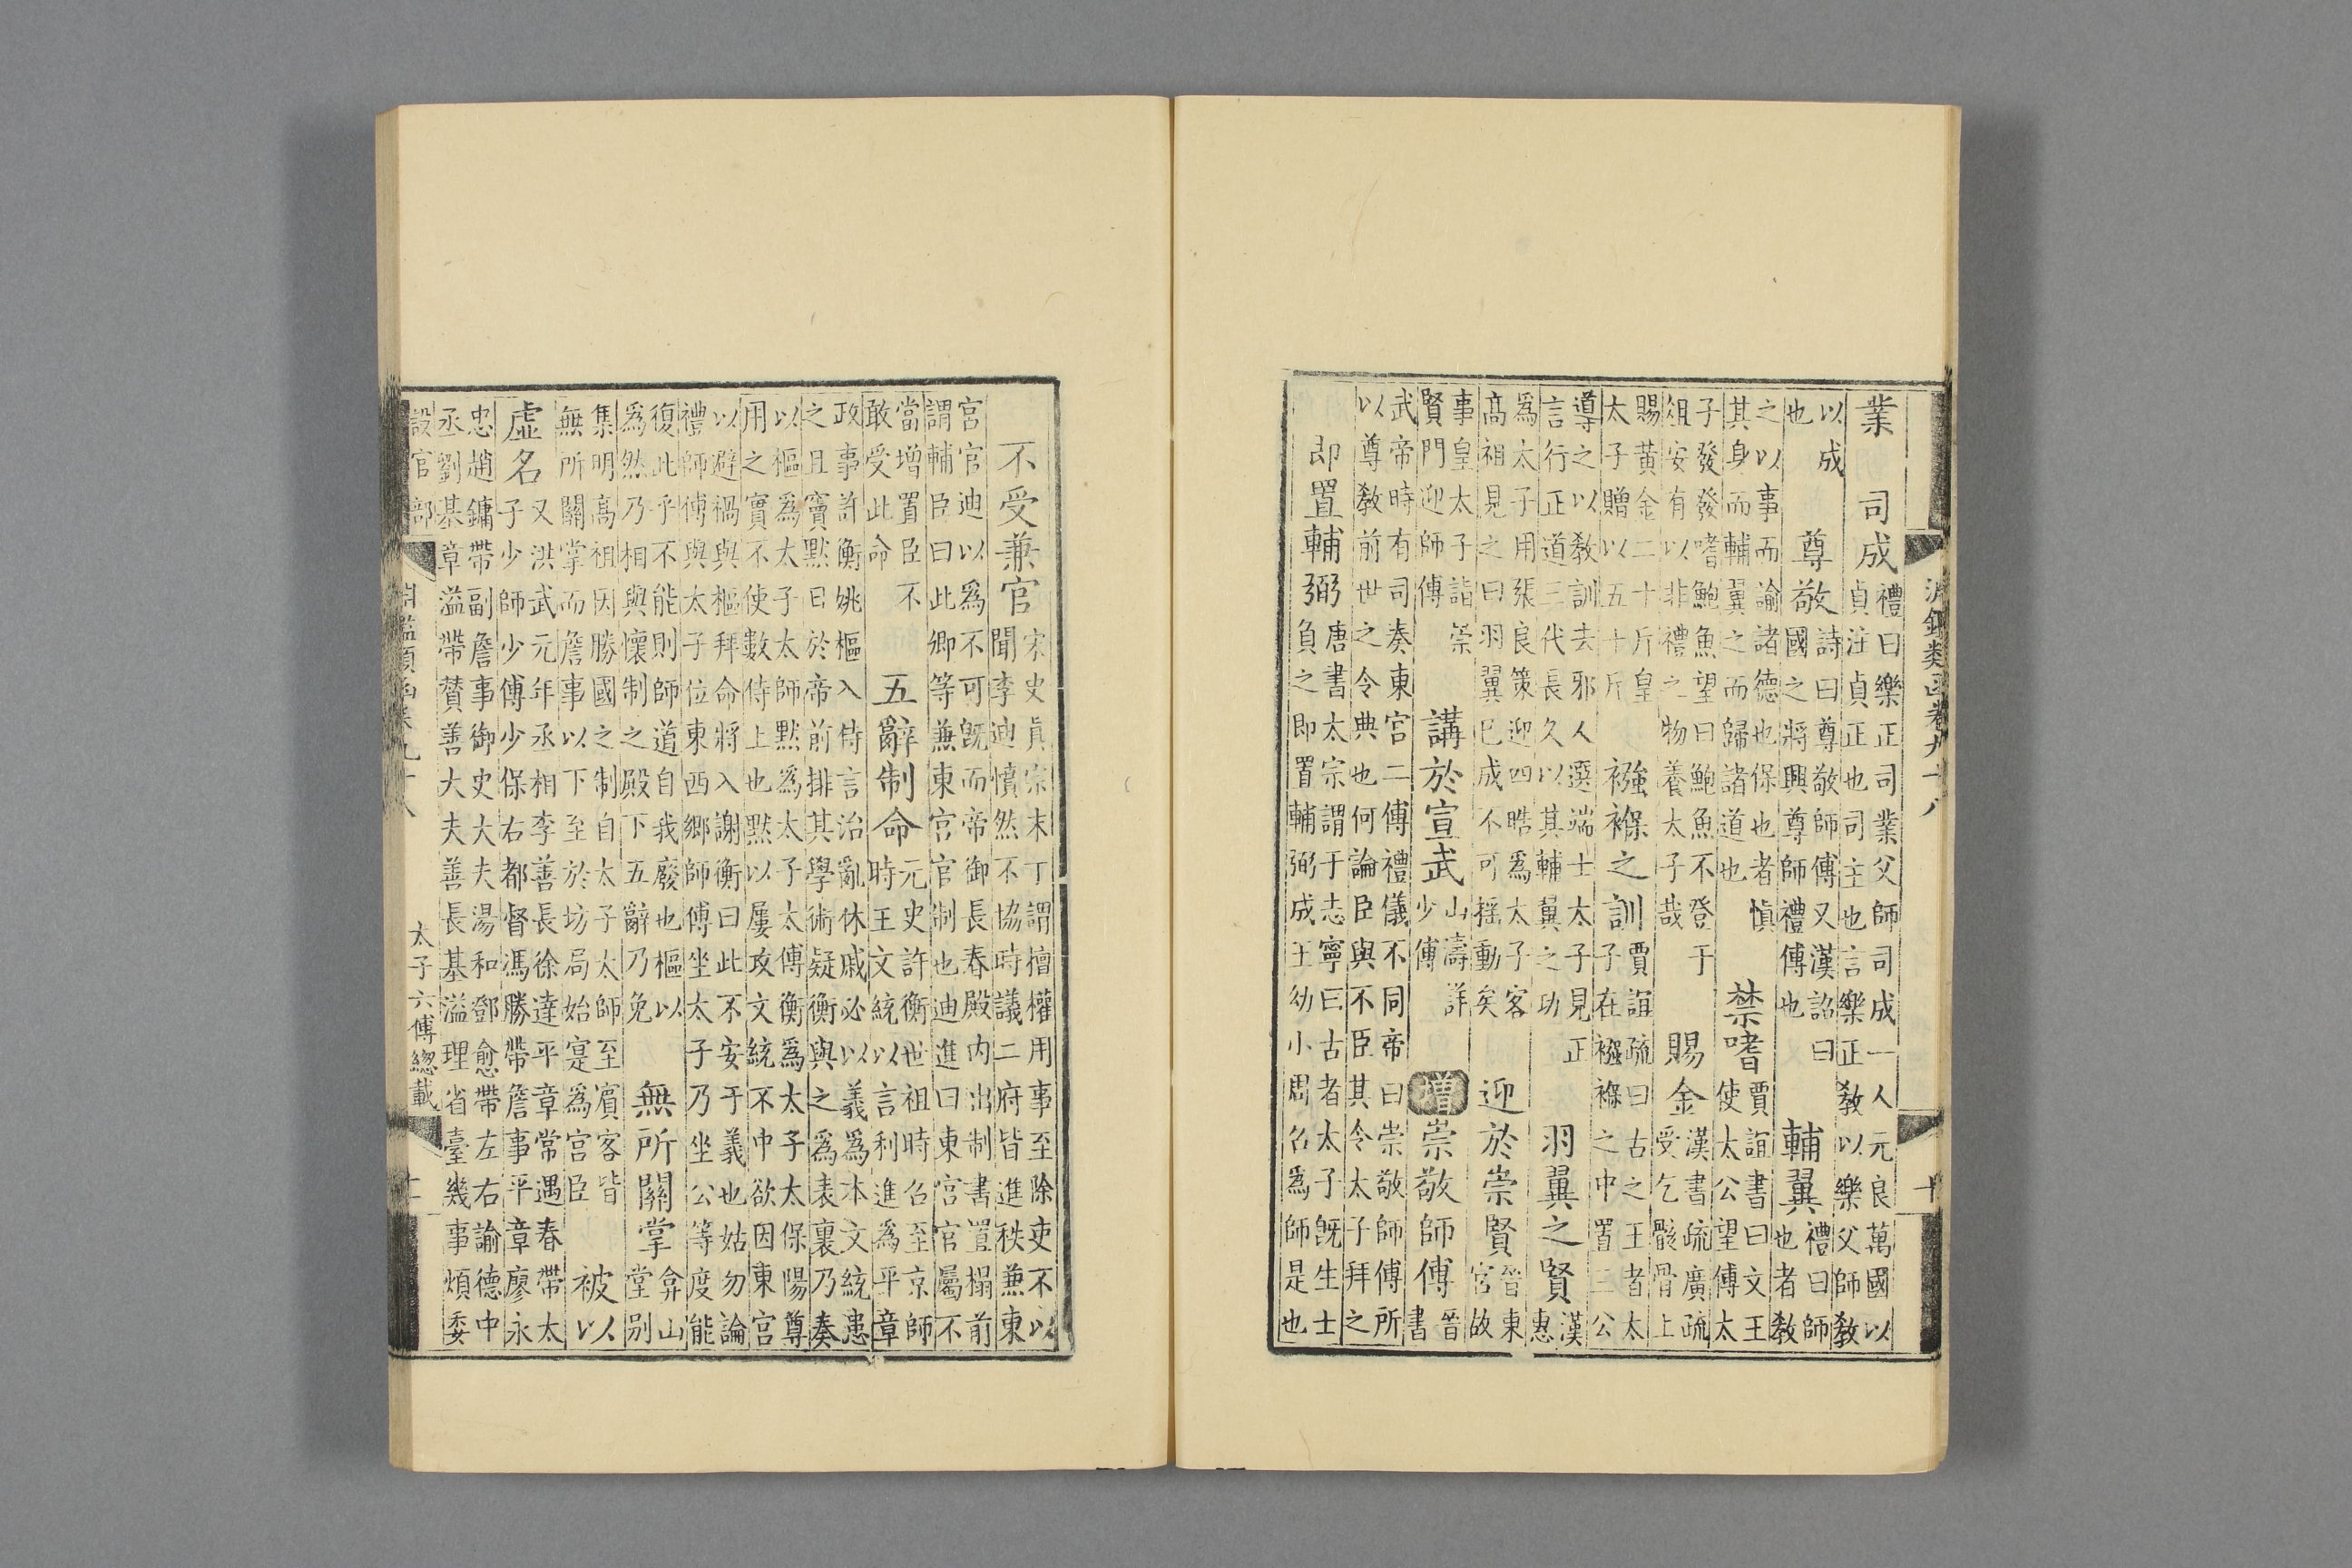 淵鑑類函卷九十八
十
業　司成
禮曰樂正司業父師司成一人元良萬國以
貞注貞正也司主也言樂正敎以樂父師敎
以成
也
尊敬
詩曰尊敬師傅又漢詔曰
國之將興尊師禮傅也
輔翼
禮曰師
也者敎
之以事而諭諸德也保也者慎
其身而輔翼之而歸諸道也
禁嗜
賈誼書曰文王
使太公望傅太
子發發嗜鮑魚望曰鮑魚不登于
俎安有以非禮之物養太子哉
賜金
漢書疏廣疏
受乞骸骨上
賜黃金二十斤皇
太子贈以五十斤
襁褓之訓
賈誼疏曰古之王者太
子在襁褓之中置三公
導之以敎訓去邪人選端士太子見正
言行正道三代長久以其輔翼之功
羽翼之賢
漢
惠
爲太子用張良策迎四皓爲太子客
高祖見之曰羽翼已成不可搖動矣
迎於崇賢
晉東
宮故
事皇太子詣崇
賢門迎師傅
講於宣武
山濤詳
少傅
增
崇敬師傅
晉
書
武帝時有司奏東宮二傅禮儀不同帝曰崇敬師傅所
以尊敎前世之令典也何論臣與不臣其令太子拜之
即置輔弼
唐書太宗謂于志寧曰古者太子既生士
負之即置輔弼成王幼小周召爲師是也
不受兼官
宋史眞宗末丁謂擅權用事至除吏不以
聞李迪憤然不協時議二府皆進秩兼東
宮官迪以爲不可既而帝御長春殿内出制書置榻前
謂輔臣曰此卿等兼東宮官制也迪進曰東宮官屬不
當增置臣不
敢受此命
五辭制命
元史許衡世祖時召至京師
時王文統以言利進爲平章
政事許衡姚樞入侍言治亂休戚必以義爲本文統患
之且竇默曰於帝前排其學術疑衡與之爲表裏乃奏
以樞爲太子太師默爲太子太傅衡爲太子太保陽尊
用之實不使數侍上也默以屢攻文統不中欲因東宮
以避禍與樞拜命將入謝衡曰此不安于義也姑勿論
禮師傅與太子位東西鄉師傅坐太子乃坐公等度能
復此乎不能則師道自我廢也樞以
爲然乃相與懷制之殿下五辭乃免
無所關掌
弇山
堂别
集明高祖因勝國之制自太子太師至賓客皆
無所關掌而詹事以下至於坊局始寔爲宮臣
被以
虛名
又洪武元年丞相李善長徐達平章常遇春帶太
子少師少傅少保右都督馮勝帶詹事平章廖永
忠趙鏞帶副詹事御史大夫湯和鄧愈帶左右諭德中
丞劉基章溢帶贊善大夫善長基溢理省臺幾事煩委
設官部
淵鑑類函卷九十八
太子六傅總載
十一